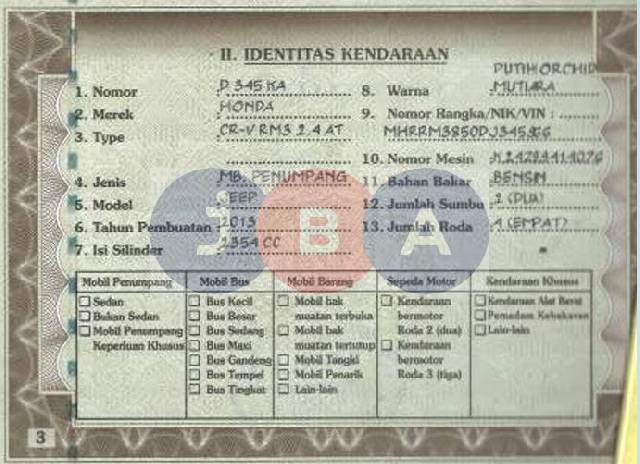 II. IDENTITAS KENDARAAN
1. Nomor : P 345 KA
2. Merek : HONDA
3. Type : CR-V RM3 2.4 AT
4. Jenis : MB. PENUMPANG
5. Model : JEEP
6. Tahun Pembuatan : 2013
7. Isi Silinder : 2354 CC
PUTIH ORCHID
8. Warna : MUTIARA
9. Nomor Rangka/NIK/VIN :
10. Nomor Mesin :
11. Bahan Bakar : BENSIN
12. Jumlah Sumbu : 2 (DUA)
13. Jumlah Roda : 4 (EMPAT)
JBA
Mobil Penumpang
Sedan
Bukan Sedan
Mobil Penumpang
Keperluan Khusus
Mobil Bus
Bus Kecil
Bus Besar
Bus Sedang
Bus Maxi
Bus Gandeng
Bus Tempel
Bus Tingkat
Mobil Barang
Mobil bak
muatan terbuka
Mobil bak
muatan tertutup
Mobil Tangki
Mobil Penarik
Lain-lain
Sepeda Motor
Kendaraan
bermotor
Roda 2 (dua)
Kendaraan
bermotor
Roda 3 (tiga)
Kendaraan Khusus
Kendaraan Alat Berat
Pemadam Kebakaran
Lain-lain
3